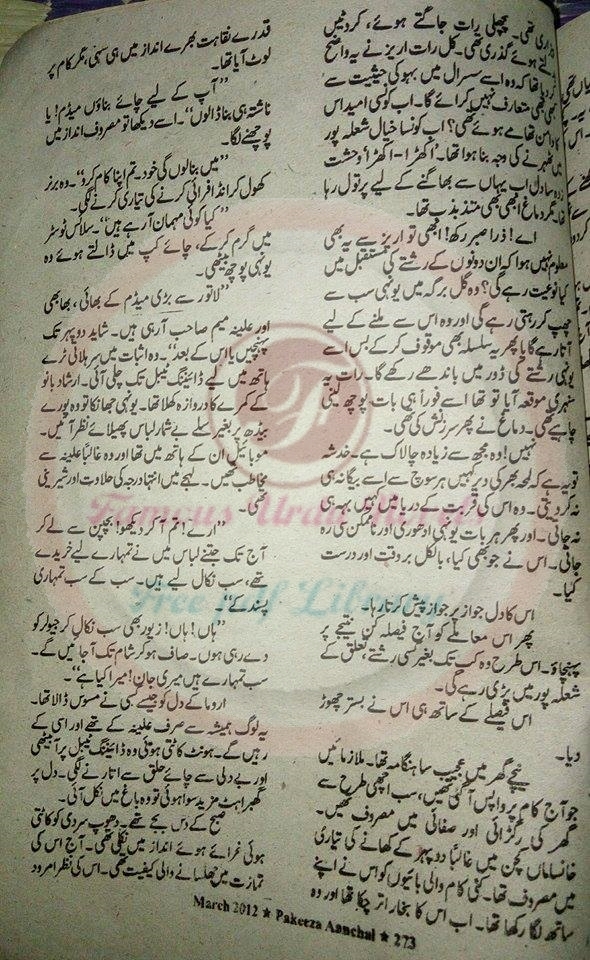 گزاری تھی۔ پچھلی رات جاگتے ہوئے، کروٹیں
بدلتے ہوئے گزری تھی۔ کل رات اریز نے یہ واضح
کر دیا تھا کہ وہ اسے سسرال میں بہو کی حیثیت سے
کبھی بھی متعارف نہیں کرائے گا۔ اب کوسی امید اس
کا دامن تھامے ہوئے تھی؟ اب کونسا خیال شعلہ پور
میں ٹھہرنے کی وجہ بنا ہوا تھا۔ اکھڑا۔ اکھڑا، وحشت
زدہ سا دل اب یہاں سے بھاگنے کے لیے پر تول رہا
تھا مگر دماغ ابھی بھی متذبذب تھا۔
اے! ذرا صبر رکھ! ابھی تو اریز سے یہ بھی
معلوم نہیں ہوا کہ ان دونوں کے رشتے کی مستقبل میں
کیا نوعیت رہے گی؟ وہ گل برگہ میں یونہی سب سے
چھپ کر رہتی رہے گی اور وہ اس سے ملنے کے لیے
آتا رہے گا یا پھر یہ سلسلہ بھی موقوف کر کے بس اسے
یونہی رشتے کی ڈور میں باندھے رکھے گا۔ رات یہ
سنہری موقعہ آیا تو تھا اسے فوراً ہی بات پوچھ لینی
چاہیے تھی۔ دماغ نے پھر سرزنش کی تھی۔
نہیں! وہ مجھ سے زیادہ چالاک ہے۔ خدشہ
تو یہ ہے کہ لمحہ بھر کی دیر کہیں ہر سوچ سے اسے بیگانہ ہی
نہ کر دیتی۔ وہ اس کی قربت کے دریا میں کہیں بہہ ہی
نہ جاتی۔ اور پھر ہر بات یونہی ادھوری اور ناممکن کی رہ
جاتی۔ اس نے جو بھی کیا، بالکل بروقت اور درست
کیا۔
اس کا دل جواز پر جواز پیش کرتا رہا۔
پھر اس معاملے کو آج فیصلہ کن نتیجے پر
پہنچاؤ۔ اس طرح وہ کب تک بغیر کسی رشتے، تعلق کے
شعلہ پور میں پڑی رہے گی۔
اس فیصلے کے ساتھ ہی اس نے بستر چھوڑ
دیا۔
نیچے گھر میں عجیب سا ہنگامہ تھا۔ ملازمائیں
جو آج کام پر واپس آ گئی تھیں، سب اچھی طرح سے
گھر کی رگڑائی اور صفائی میں مصروف تھیں۔
خانساماں کچن میں غالباً دوپہر کے کھانے کی تیاری
میں مصروف تھا۔ کئی کام والی بائیوں کو اس نے اپنے
ساتھ لگا رکھا تھا۔ اب اس کا بخار اتر چکا تھا اور وہ
قدرے نقاہت بھرے انداز میں ہی سہی، مگر کام پر
لوٹ آیا تھا۔
"آپ کے لیے چائے بناؤں میڈم! یا
ناشتہ ہی بنا ڈالوں"۔ اسے دیکھا تو مصروف انداز میں
پوچھنے لگا۔
"میں بنالوں گی خود۔ تم اپنا کام کرو"۔ وہ برنر
کھول کر انڈا فرائی کرنے کی تیاری کرنے لگی۔
"کیا کوئی مہمان آ رہے ہیں"۔ سلائس ٹوسٹر
میں گرم کر کے، چائے کپ میں ڈالتے ہوئے وہ
یونہی پوچھ بیٹھی۔
"لاتور سے بڑی میڈم کے بھائی، بھابھی
اور علینہ میم صاحب آ رہی ہیں۔ شاید دوپہر تک
پہنچیں یا اس کے بعد"۔ وہ اثبات میں سر ہلاتی ٹرے
ہاتھ میں لیے ڈائیننگ ٹیبل تک چلی آئی۔ ارشاد بانو
کے کمرے کا دروازہ کھلا تھا۔ یونہی جھانکا تو وہ پورے
بیڈ پر بغیر سلے بے شمار لباس پھیلائے نظر آئیں۔
موبائیل ان کے ہاتھ میں تھا اور وہ غالباً علینہ سے
مخاطب تھیں۔ لہجے میں انتہا درجہ کی حلاوت اور شیرینی
تھی۔
"ارے! تم آ کر دیکھو! بچپن سے لے کر
آج تک جتنے لباس میں نے تمہارے لیے خریدے
تھے، سب نکال لیے ہیں۔ سب کے سب تمہاری
پسند کے"۔
"ہاں! ہاں! زیور بھی سب نکال کر جیولر کو
دے رہی ہوں۔ صاف ہو کر شام تک آ جائیں گے۔
سب تمہارے ہیں میری جان! میرا کیا ہے"۔
اروما کے دل کو جیسے کسی نے مسوس ڈالا تھا۔
یہ لوگ ہمیشہ سے صرف علینہ کے تھے اور اسی کے
رہیں گے۔ ہونٹ کاٹتی ہوئی وہ ڈائیننگ ٹیبل پر آ بیٹھی
اور بے دلی سے چائے حلق سے اتارنے لگی۔ دل پر
گھبراہٹ مزید سوا ہوئی تو وہ باغ میں نکل آئی۔
صبح کے دس بجے تھے۔ دھوپ سردی کو کاٹتی
ہوئی غراتے ہوئے انداز میں نکلی تھی۔ آج اس کی
تمازت میں جھلسانے والی کیفیت تھی۔ اس کی نظر امرود
March 2012 ★ Pakeeza Aanchal ★ 273
Famous Urdu Novels
Free pdf Library